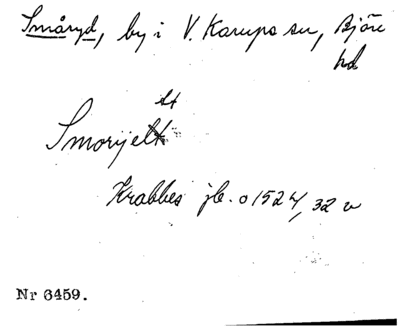 Småryd, by i V. Karups sn, Bjäre
hd
tt
Smoryelt
Krabbes jb. o 1524, 32 v
Nr 6459.